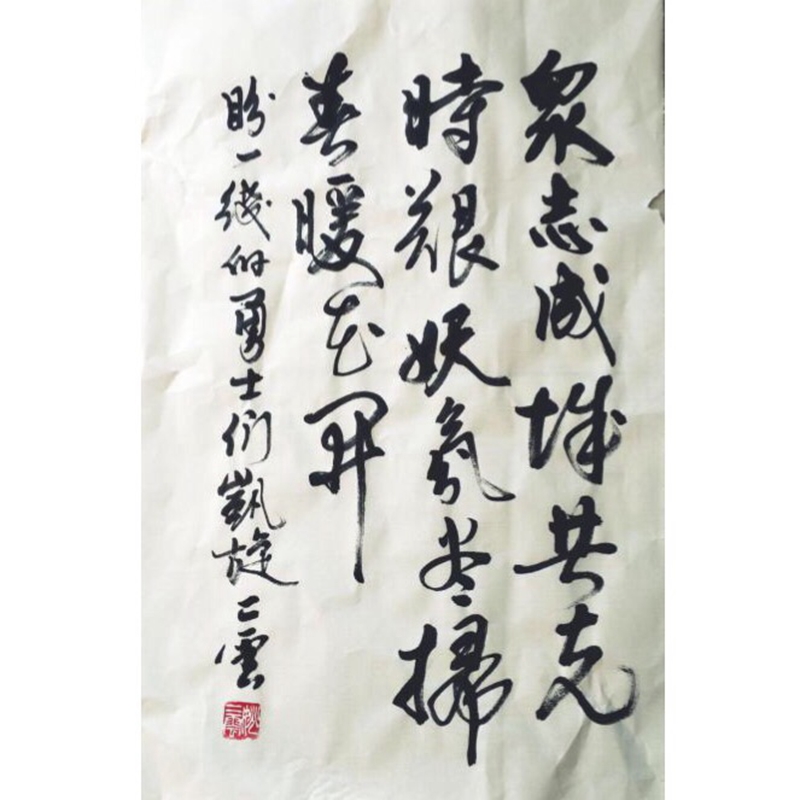 眾志成城共克
時艱妖氛盡掃
春暖花開
盼一线的勇士们凱旋二雲